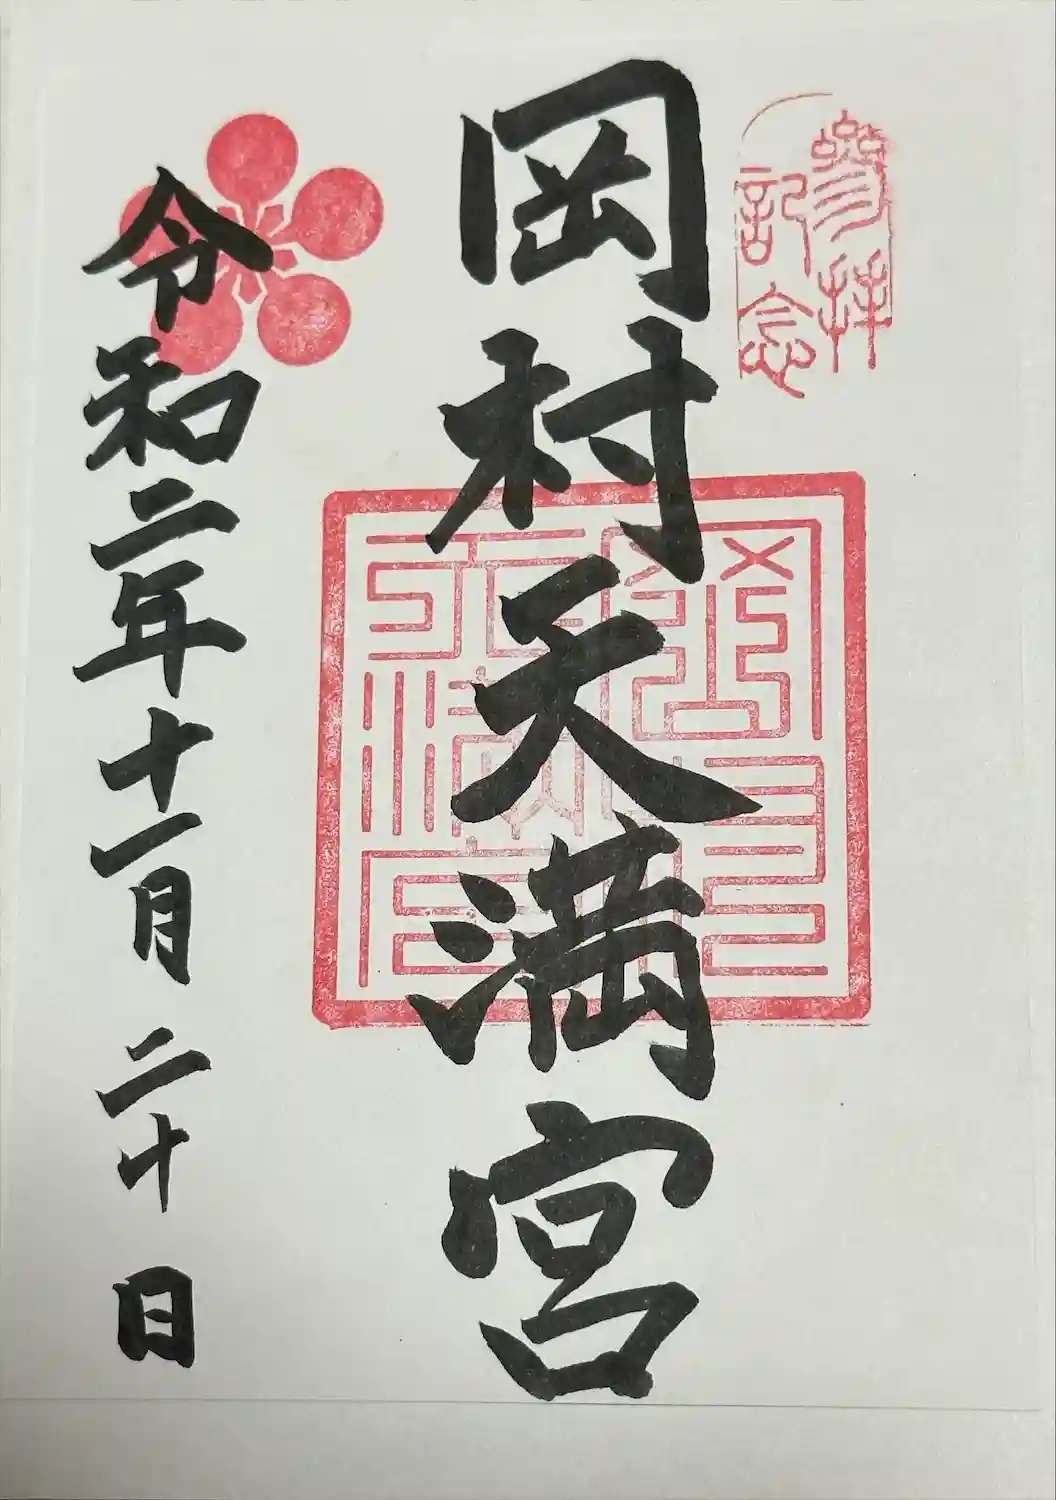 參拝
記念
岡村天満宮
令和二年十一月二十日